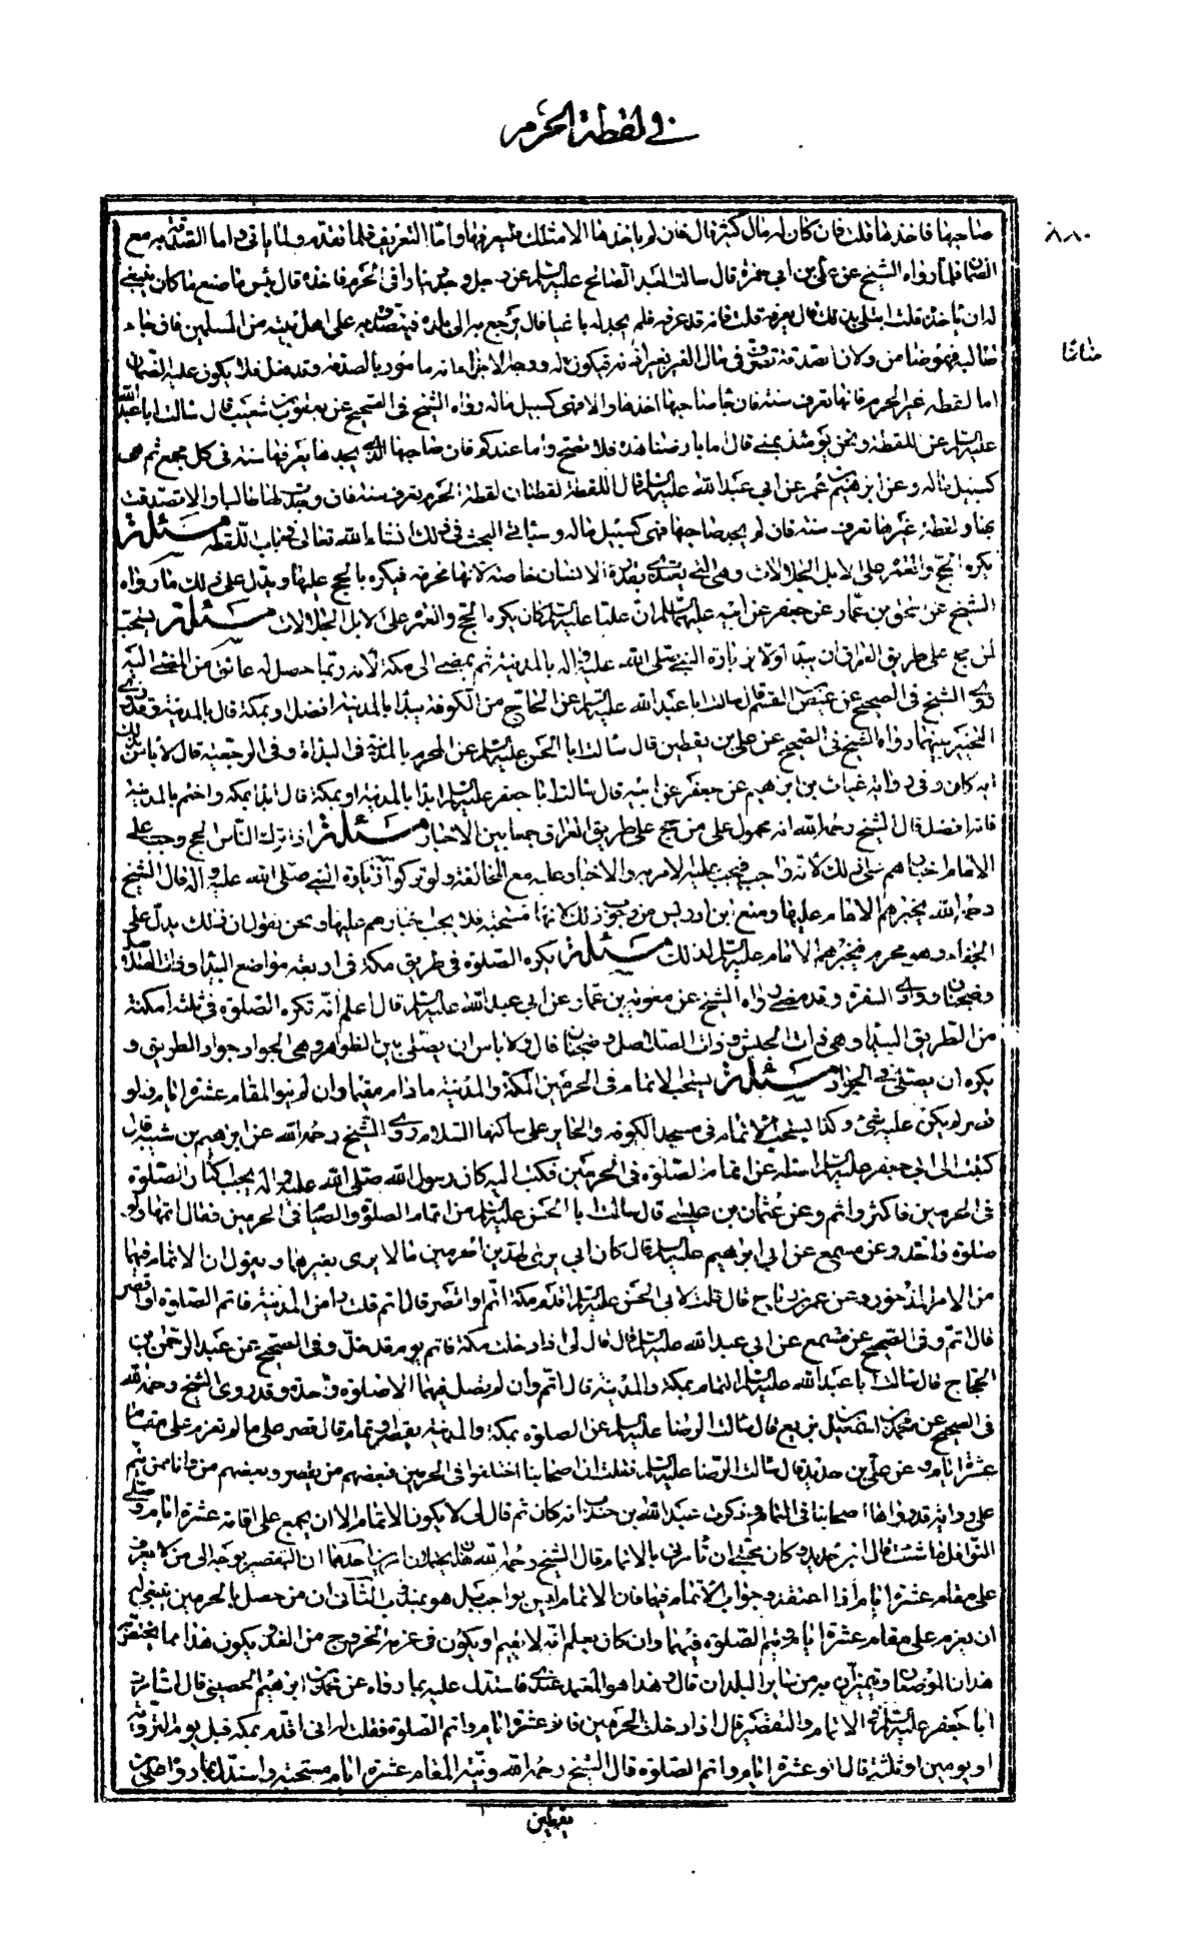 في لقطة الحرم
٨٨٠
صاحبها فاخذها قلت فان كان له مال كثير قال فان لم ياخذها الا مثلك فليعرفها واما التعريف فلما تقدم ولما ياتي واما الصدقة به مع
الضمان فلما رواه الشيخ عن علي بن ابي حمزة قال سالت العبد الصالح عليه السلم عن رجل وجد دينارا في الحرم فاخذه قال بئس ما صنع ما كان ينبغي
له ان ياخذه قلت ابتلي بذلك قال يعرفه قلت فانه قد عرفه فلم يجد له باغيا قال يرجع به الى بلده فيتصدق به على اهل بيت من المسلمين فان جاء
طالبه فهو ضامن ولان الصدقة تصرف في مال الغير بغير اذنه فيكون له ووجه الاجزاء انه مامور بالصدقة وقد فعل فلا يكون عليه الضمان
اما لقطة غير الحرم فانها تعرف سنة فان جا صاحبها اخذها والا فهي كسبيل ماله رواه الشيخ في الصحيح عن يعقوب بن شعيب قال سالت ابا عبد الله
عليه السلم عن اللقطة ونحن يومئذ بمنى قال اما بارضنا هذه فلا تصح واما عندكم فان صاحبها الذي يجدها يعرفها سنة في كل مجمع ثم هي
كسبيل ماله وعن ابرهيم بن عمر عن ابي عبد الله عليه السلم قال اللقطة لقطتان لقطة الحرم تعرف سنة فان وجدت لها طالبا والا تصدقت
بها ولقطة غيرها تعرف سنة فان لم يجد صاحبها فهي كسبيل ماله وسياتي البحث في ذلك انشاء الله تعالى في باب اللقطة مسئلة
يكره الحج والعمرة على الابل الجلالات وهي التي يغتذي بعذرة الانسان خاصة لانها محرمة فيكره الحج عليها ويدل على ذلك ما رواه
الشيخ عن اسحق بن عمار عن جعفر عن ابيه عليهما السلم ان عليا عليه السلم كان يكره الحج والعمرة على الابل الجلالات مسئلة يستحب
لمن حج على طريق العراق ان يبدا اولا بزيارة النبي صلى الله عليه واله بالمدينة ثم يمضي الى مكة لانه ربما حصل له عائق من المضي اليه
روى الشيخ في الصحيح عن عيص بن القسم قال سالت ابا عبد الله عليه السلم عن الحاج من الكوفة يبدا بالمدينة افضل او بمكة قال بالمدينة وقد روى
التخيير بينهما رواه الشيخ في الصحيح عن علي بن يقطين قال سالت ابا الحسن عليه السلم عن الممر بالمدينة في البداة وفي الرجعة قال لا باس بذلك
ايه كان وفي رواية غياث بن ابرهيم عن جعفر عن ابيه قال سالت ابا جعفر عليه السلم ابدا بالمدينة او بمكة قال ابدا بمكة واختم بالمدينة
فانه افضل قال الشيخ رحمه الله انه محمول على من حج على طريق العراق جمعا بين الاخبار مسئلة اذا ترك الناس الحج وجب على
الامام اجبارهم على ذلك لانه واجب فيجب عليه الامر به والاخبار عليه مع المخالفة ولو تركوا زيارة النبي صلى الله عليه واله قال الشيخ
رحمه الله يجبرهم الامام عليها ومنع ابن ادريس من وجوب ذلك لانها مستحبة فلا يجب اجبارهم عليها ونحن نقول ان ذلك يدل على
الجفاء وهو محرم فيجبرهم الامام عليه السلم لذلك مسئلة يكره الصلوة في طريق مكة في اربعة مواضع البيدا وذات الصلاصل
وضجنان ووادي الشقرة وقد مضى رواه الشيخ عن معوية بن عمار عن ابي عبد الله عليه السلم قال اعلم انه تكره الصلوة في ثلثة امكنة
من الطريق البيدا وهي ذات الجيش وذات الصلاصل وضجنان قال ولا باس ان يصلى بين الظواهر وهي الجواد جواد الطريق و
يكره ان يصلى في الجواد مسئلة يستحب الاتمام في الحرمين المكة والمدينة ما دام مقيما وان لم ينو المقام عشرة ايام ولو
قصر لم يكن عليه شئ وكذا يستحب الاتمام في مسجد الكوفة والحاير على ساكنها السلام روى الشيخ رحمه الله عن ابرهيم بن شيبة قال
كتبت الى ابي جعفر عليه السلم اسئله عن اتمام الصلوة في الحرمين فكتب اليه كان رسول الله صلى الله عليه واله يحب اكثار الصلوة
في الحرمين فاكثر واتم وعن عثمان بن عيسى قال سالت ابا الحسن عليه السلم عن اتمام الصلوة والصيام في الحرمين فقال اتمها ولو
صلوة واحدة وعن مسمع عن ابي ابرهيم عليه السلم قال كان ابي يرى لهذين الحرمين ما لا يرى بغيرهما ويقول ان الاتمام فيهما
من الامر المذخور وعن عمر بن رباح قال قلت لابي الحسن عليه السلم اقدم مكة اتم او اقصر قال اتم قلت وامر المدينة فاتم الصلوة او اقصر
قال اتم وفي الصحيح عن مسمع عن ابي عبد الله عليه السلم قال قال لي اذا دخلت مكة فاتم يوم تدخل وفي الصحيح عن عبد الرحمن بن
الحجاج قال سالت ابا عبد الله عليه السلم التمام بمكة والمدينة قال اتم وان لم تصل فيهما الا صلوة واحدة وقد روى الشيخ رحمه الله
في الصحيح عن محمد بن اسمعيل بن بزيع قال سالت الرضا عليه السلم عن الصلوة بمكة والمدينة بقصر او تمام قال قصر ما لم تعزم على مقام
عشرة ايام وعن علي بن حديد قال سالت الرضا عليه السلم فقلت ان اصحابنا اختلفوا في الحرمين فبعضهم من يقصر وبعضهم من
على رواية قد رواها اصحابنا في التمام وذكرت عبد الله بن جندب انه كان يتم قال لي لا يكون الاتمام الا ان يجمع على اقامة عشرة ايام وصلى
النوافل ما شئت قال ابن حديد وكان محبتي ان تامرني بالاتمام قال الشيخ رحمه الله
على مقام عشرة ايام اذا اعتقد وجوب الاتمام فيهما فان الاتمام ليس بواجب بل هو مندوب الثاني ان من حصل بالحرمين ينبغي له
ان يعزم على مقام عشرة ايام ويتم الصلوة فيهما وان كان يعلم انه لا يقيم او يكون في عزمه الخروج من الغد ويكون هذا مما يختص به
هذان الموضعان ويتميزان به من ساير البلدان قال وهذا هو المعتمد عندي فاستدل عليه بما رواه عن محمد بن ابرهيم الحصيني قال استامرت
ابا جعفر عليه السلم في الاتمام والتقصير قال اذا دخلت الحرمين فانو عشرة ايام واتم الصلوة فقلت له اني اقدم بمكة قبل يوم التروية
او يومين او ثلثة قال انو عشرة ايام واتم الصلوة قال الشيخ رحمه الله ونية المقام عشرة ايام مستحبة واستدل بما رواه علي بن
يقطين